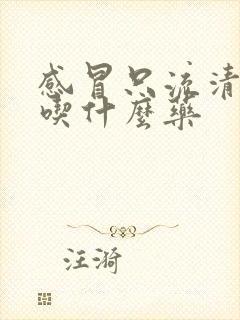 感冒只流清
喫什麼藥
汪漪